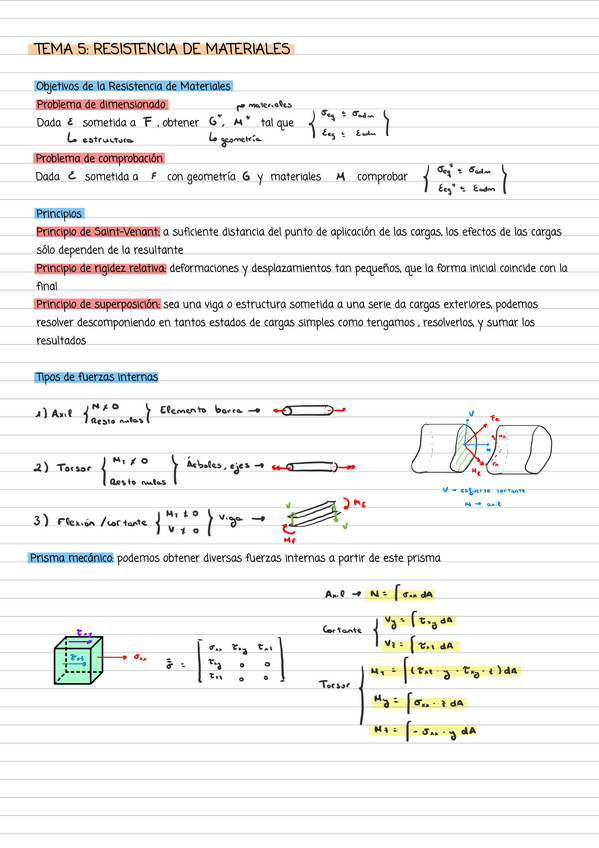 TEMA 5: RESISTENCIA DE MATERIALES
Objetivos de la Resistencia de Materiales
Problema de dimensionado
↪ materiales
Dada ε sometida a F, obtener G*, M* tal que { σeq ≤ σadm
εeq ≤ εadm }
↳ estructura ↳ geometría
Problema de comprobación
Dada ε sometida a F con geometría G y materiales M comprobar { σeq* ≤ σadm
εeq* ≤ εadm }
Principios
Principio de Saint-Venant: a suficiente distancia del punto de aplicación de las cargas, los efectos de las cargas
sólo dependen de la resultante
Principio de rigidez relativa: deformaciones y desplazamientos tan pequeños, que la forma inicial coincide con la
final
Principio de superposición: sea una viga o estructura sometida a una serie da cargas exteriores, podemos
resolver descomponiendo en tantos estados de cargas simples como tengamos , resolverlos, y sumar los
resultados
Tipos de fuerzas internas
1) Axil { N ≠ 0
Resto nulas } Elemento barra →
2) Torsor { MT ≠ 0
Resto nulas } Árboles, ejes →
3) Flexión /cortante { MT ≠ 0
V ≠ 0 } Viga →
V
Mf
V
Mf
V
N
V → esfuerzo cortante
N → axil
Prisma mecánico: podemos obtener diversas fuerzas internas a partir de este prisma
τxy
τxz
σxx
σ = [ σxx τxy τxz
τxy 0 0
τxz 0 0 ]
Axil → N = ∫ σxx dA
Cortante { Vy = ∫ τxy dA
Vz = ∫ τxz dA
Torsor { MT = ∫ (τxz · y - τxy · z) dA
My = ∫ σxx · z dA
Mz = ∫ - σxx · y dA